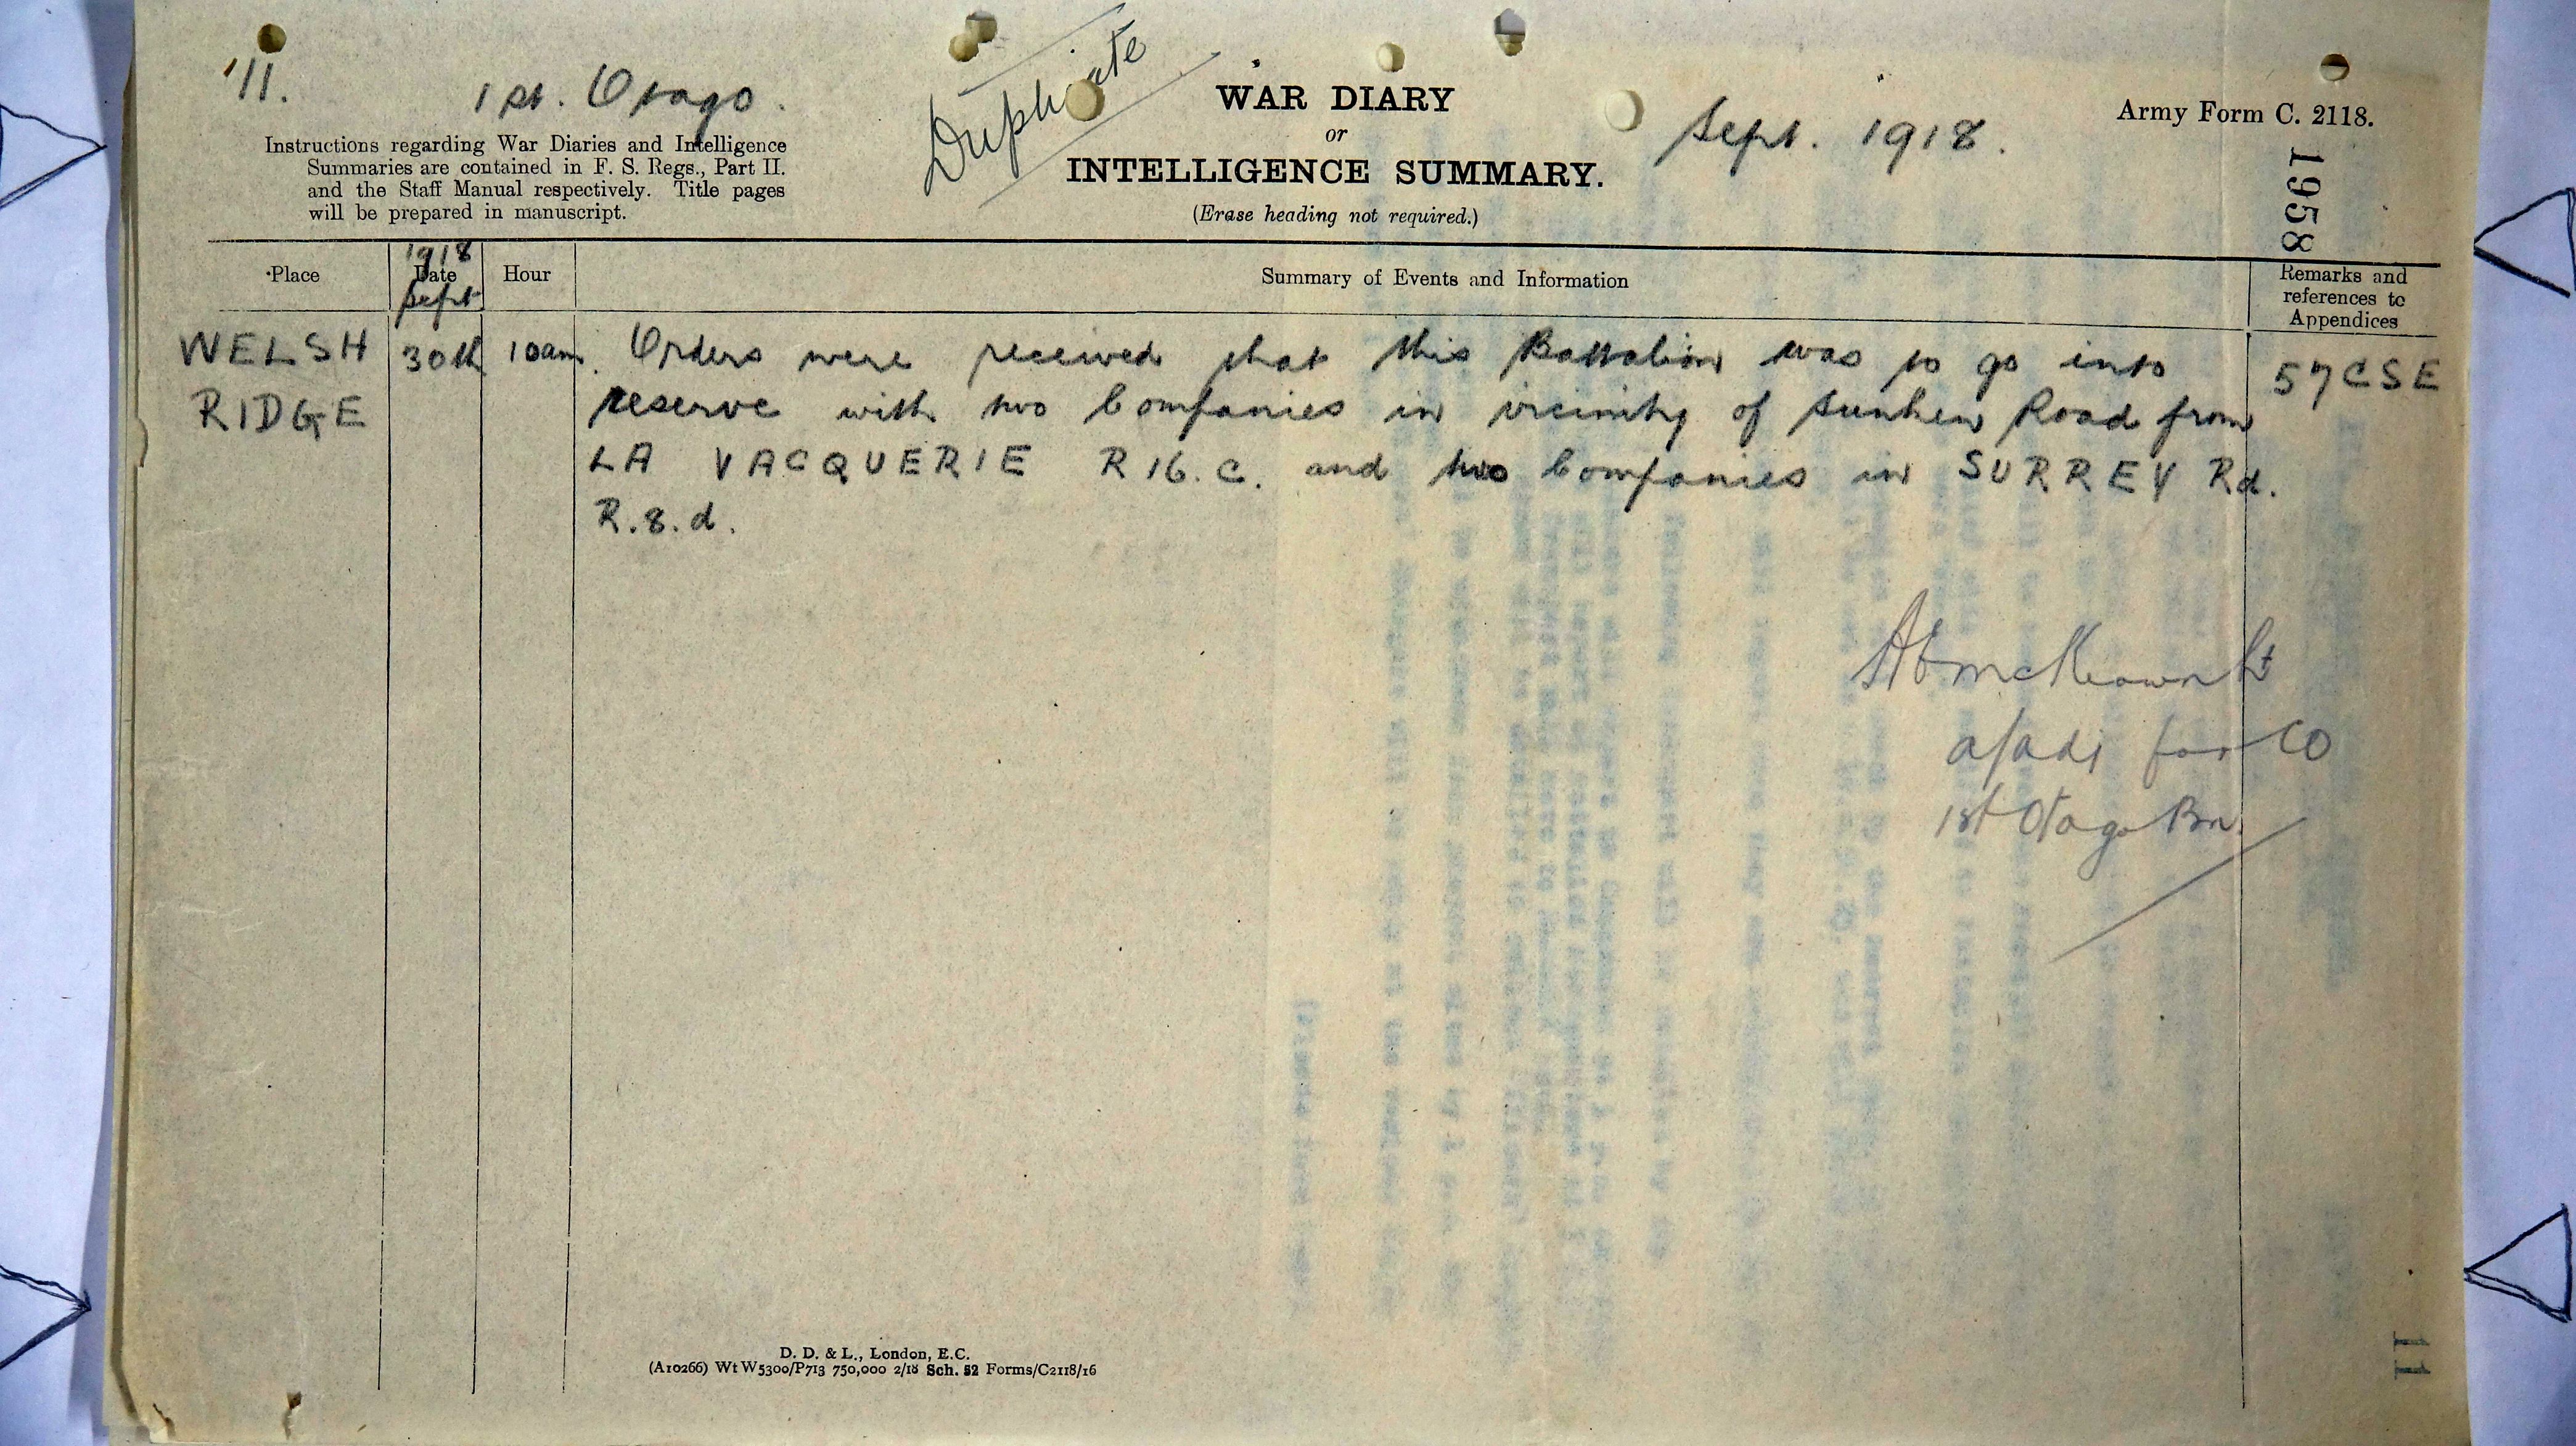 11.
1st. Otago.
Duplicate
WAR DIARY
or
INTELLIGENCE SUMMARY.
(Erase heading not required.)
Sept. 1918.
Army Form C. 2118.
1958
Instructions regarding War Diaries and Intelligence
Summaries are contained in F. S. Regs., Part II.
and the Staff Manual respectively. Title pages
will be prepared in manuscript.
Place
1918
Date
Sept
Hour
Summary of Events and Information
Remarks and
references to
Appendices
WELSH 30th 10am. Orders were received that this Battalion was to go into 57CSE
RIDGE reserve with two Companies in vicinity of Sunken Road from
LA VACQUERIE R 16. C. and two Companies in SURREY Rd.
R.8.d.
McKeown Lt
a/adj for CO
1st Otago Bn.
D. D. & L., London, E.C.
(A10266) Wt W5300/P713 750,000 2/18 Sch. 52 Forms/C2118/16
11